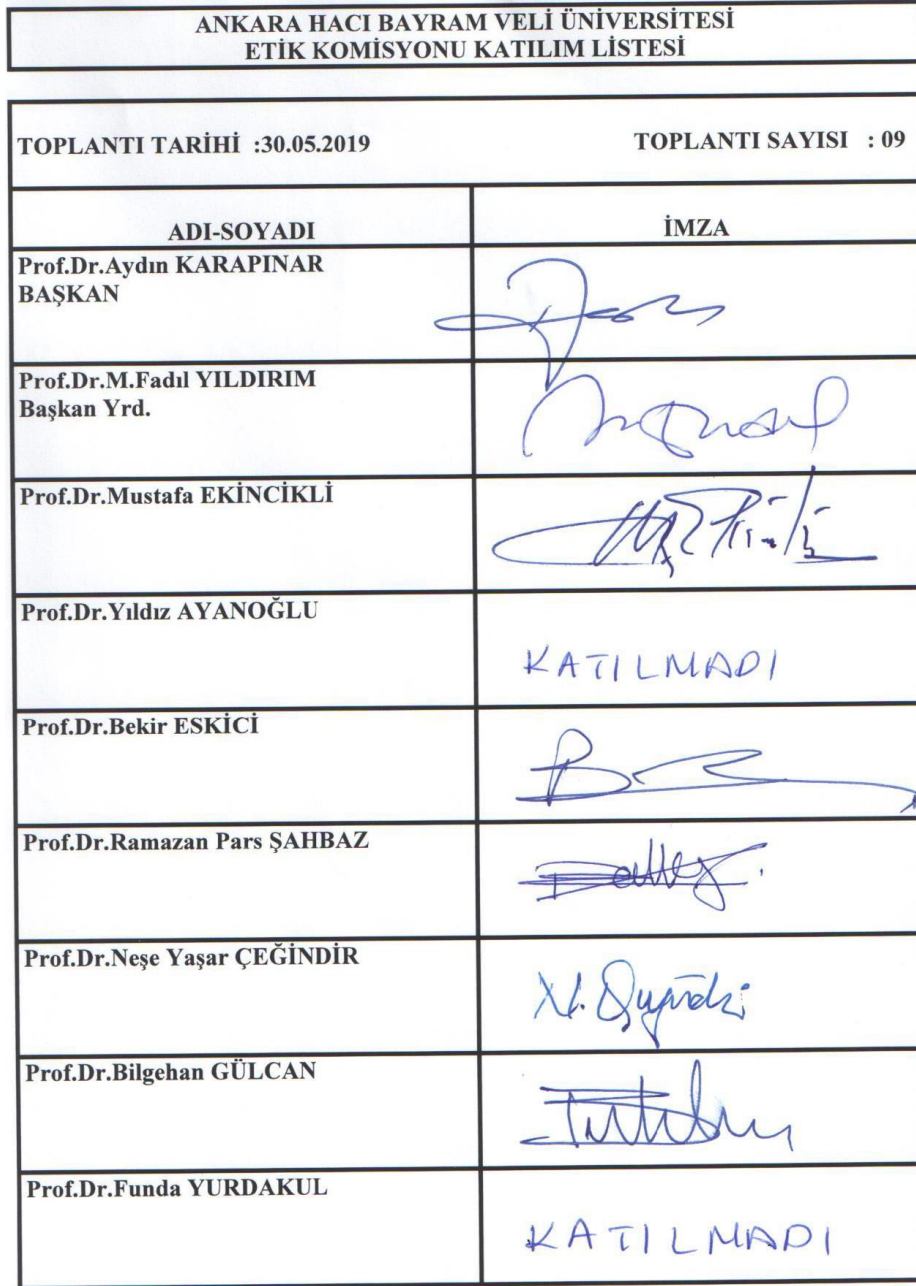 ANKARA HACI BAYRAM VELİ ÜNİVERSİTESİ
ETİK KOMİSYONU KATILIM LİSTESİ
TOPLANTI TARİHİ :30.05.2019 TOPLANTI SAYISI : 09
ADI-SOYADI İMZA
Prof.Dr.Aydın KARAPINAR
BAŞKAN
Prof.Dr.M.Fadıl YILDIRIM
Başkan Yrd.
Prof.Dr.Mustafa EKİNCİKLİ
Prof.Dr.Yıldız AYANOĞLU
KATILMADI
Prof.Dr.Bekir ESKİCİ
Prof.Dr.Ramazan Pars ŞAHBAZ
Prof.Dr.Neşe Yaşar ÇEĞİNDİR
Prof.Dr.Bilgehan GÜLCAN
Prof.Dr.Funda YURDAKUL
KATILMADI